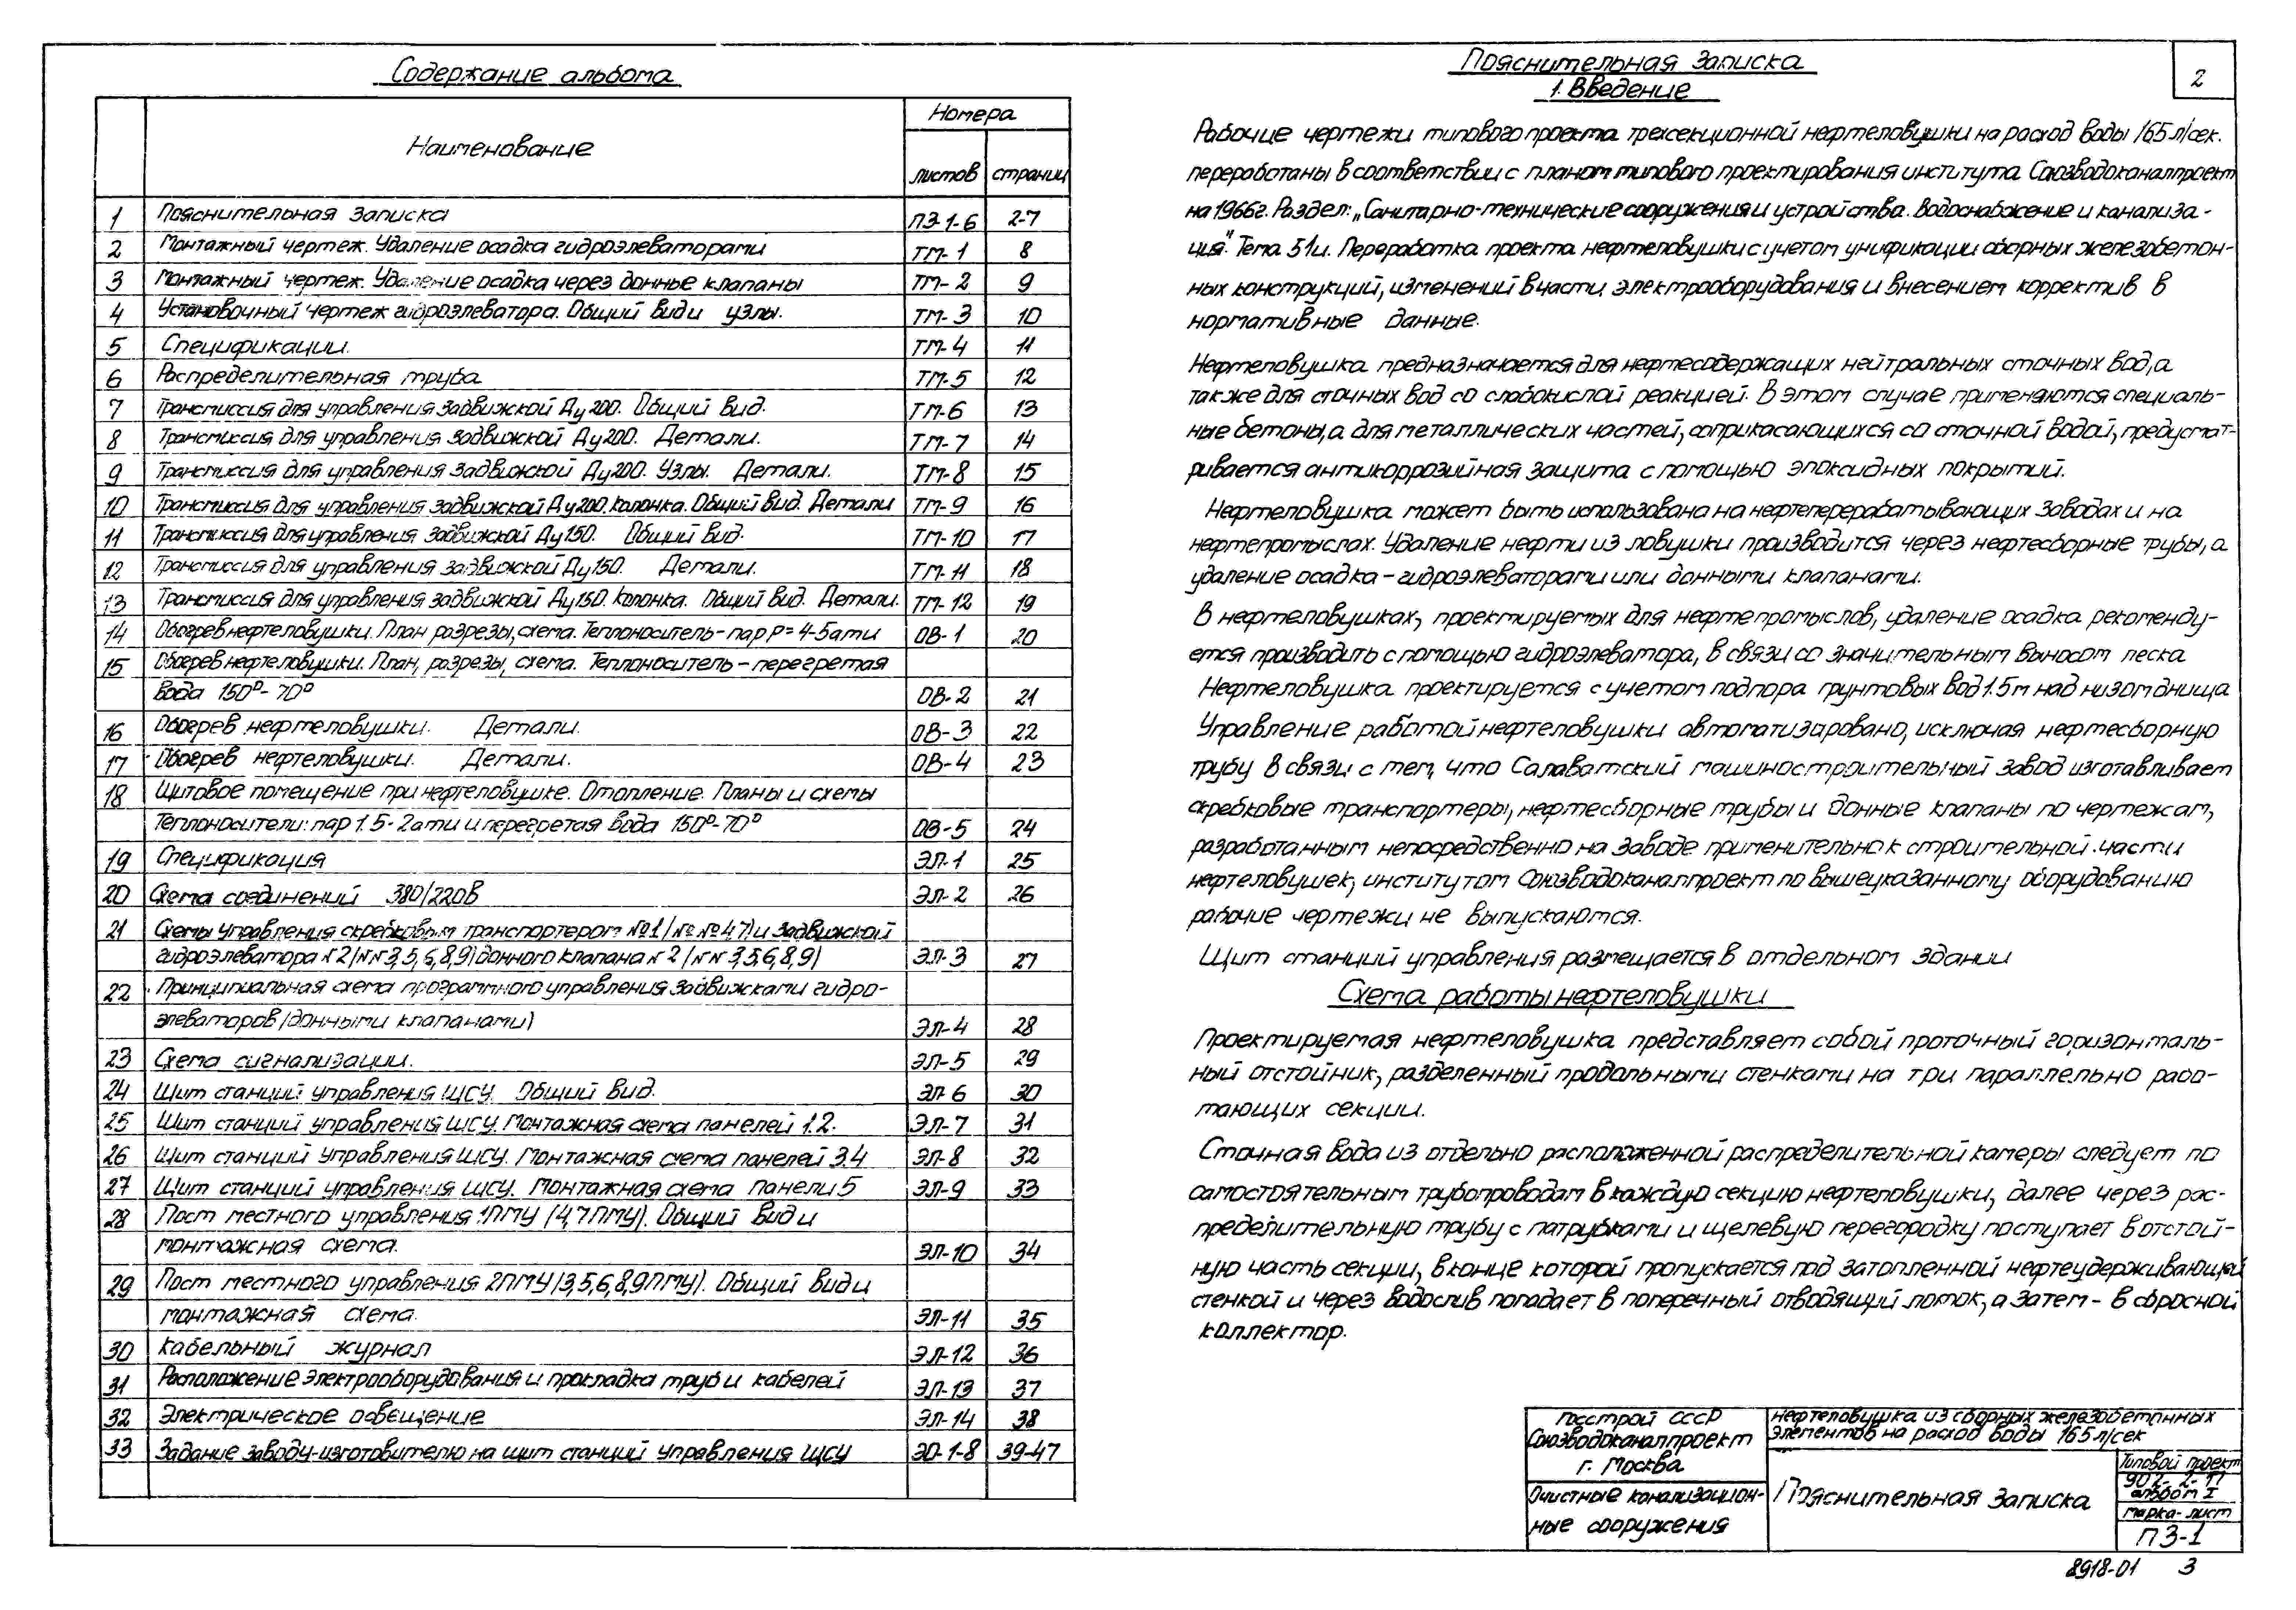 Содержание альбома
Наименование
Номера
листов страниц
1 Пояснительная записка ПЗ-1-6 2-7
2 Монтажный чертеж. Удаление осадка гидроэлеваторами ТМ-1 8
3 Монтажный чертеж. Удаление осадка через донные клапаны ТМ-2 9
4 Установочный чертеж гидроэлеватора. Общий вид и узлы. ТМ-3 10
5 Спецификации. ТМ-4 11
6 Распределительная труба ТМ-5 12
7 Трансмиссия для управления задвижкой Ду200. Общий вид. ТМ-6 13
8 Трансмиссия для управления задвижкой Ду200. Детали. ТМ-7 14
9 Трансмиссия для управления задвижкой Ду200. Узлы. Детали. ТМ-8 15
10 Трансмиссия для управления задвижкой Ду200. Колонка. Общий вид. Детали ТМ-9 16
11 Трансмиссия для управления задвижкой Ду150. Общий вид. ТМ-10 17
12 Трансмиссия для управления задвижкой Ду150. Детали. ТМ-11 18
13 Трансмиссия для управления задвижкой Ду150. Колонка. Общий вид. Детали. ТМ-12 19
14 Обогрев нефтеловушки. План разрезы, схема. Теплоноситель-пар Р=4-5ати ОВ-1 20
15 Обогрев нефтеловушки. План, разрезы, схема. Теплоноситель-перегретая
вода 150°-70° ОВ-2 21
16 Обогрев нефтеловушки. Детали. ОВ-3 22
17 Обогрев нефтеловушки. Детали. ОВ-4 23
18 Щитовое помещение при нефтеловушке. Отопление. Планы и схемы
Теплоносители: пар 1.5-2ати и перегретая вода 150°-70° ОВ-5 24
19 Спецификация ЭЛ-1 25
20 Схема соединений 380/220в ЭЛ-2 26
21 Схемы управления скребковым транспортером №1/№№4,7/ и задвижкой
гидроэлеватора №2/№№3,5,6,8,9/ донного клапана №2/№№3,5,6,8,9/ ЭЛ-3 27
22 Принципиальная схема программного управления задвижками гидро-
элеваторов/донными клапанами/ ЭЛ-4 28
23 Схема сигнализации. ЭЛ-5 29
24 Щит станций управления ЩСУ. Общий вид. ЭЛ-6 30
25 Щит станций управления ЩСУ. Монтажная схема панелей 1.2. ЭЛ-7 31
26 Щит станций управления ЩСУ. Монтажная схема панелей 3.4 ЭЛ-8 32
27 Щит станций управления ЩСУ. Монтажная схема панели 5 ЭЛ-9 33
28 Пост местного управления 1ПМУ /4,7ПМУ/. Общий вид и
монтажная схема. ЭЛ-10 34
29 Пост местного управления 2ПМУ/3,5,6,8,9ПМУ/. Общий вид и
монтажная схема. ЭЛ-11 35
30 Кабельный журнал ЭЛ-12 36
31 Расположение электрооборудования и прокладка труб и кабелей ЭЛ-13 37
32 Электрическое освещение ЭЛ-14 38
33 Задание заводу-изготовителю на щит станций управления ЩСУ ЭО-1-8 39-47
2
Пояснительная записка
1. Введение
Рабочие чертежи типового проекта трехсекционной нефтеловушки на расход воды 165 л/сек.
переработаны в соответствии с планом типового проектирования института Союзводоканалпроект
на 1966г. Раздел: „Санитарно-технические сооружения и устройства. Водоснабжение и канализа-
ция". Тема 51и. Переработка проекта нефтеловушки с учетом унификации сборных железобетон-
ных конструкций, изменений в части электрооборудования и внесением корректив в
нормативные данные.
Нефтеловушка предназначается для нефтесодержащих нейтральных сточных вод, а
также для сточных вод со слабокислой реакцией. В этом случае применяются специаль-
ные бетоны, а для металлических частей, соприкасающихся со сточной водой, предусмат-
ривается антикоррозийная защита с помощью эпоксидных покрытий.
Нефтеловушка может быть использована на нефтеперерабатывающих заводах и на
нефтепромыслах. Удаление нефти из ловушки производится через нефтесборные трубы, а
удаление осадка-гидроэлеваторами или донными клапанами.
В нефтеловушках, проектируемых для нефтепромыслов, удаление осадка рекоменду-
ется производить с помощью гидроэлеватора, в связи со значительным выносом песка
Нефтеловушка проектируется с учетом подпора грунтовых вод 1.5м над низом днища
Управление работой нефтеловушки автоматизировано, исключая нефтесборную
трубу в связи с тем, что Салаватский машиностроительный завод изготавливает
скребковые транспортеры, нефтесборные трубы и донные клапаны по чертежам,
разработанным непосредственно на заводе применительно к строительной части
нефтеловушек, институтом Союзводоканалпроект по вышеуказанному оборудованию
рабочие чертежи не выпускаются.
Щит станций управления размещается в отдельном здании
Схема работы нефтеловушки
Проектируемая нефтеловушка представляет собой проточный горизонталь-
ный отстойник, разделенный продольными стенками на три параллельно рабо-
тающих секции.
Сточная вода из отдельно расположенной распределительной камеры следует по
самостоятельным трубопроводам в каждую секцию нефтеловушки, далее через рас-
пределительную трубу с патрубками и щелевую перегородку поступает в отстой-
ную часть секции, в конце которой пропускается под затопленной нефтеудерживающей
стенкой и через водослив попадает в поперечный отводящий лоток, а затем - в сбросной
коллектор.
Госстрой СССР
Союзводоканалпроект
г. Москва
Нефтеловушка из сборных железобетонных
элементов на расход воды 165 л/сек
Очистные канализацион-
ные сооружения
Пояснительная записка
Типовой проект
902-2-17
альбом I
марка-лист
ПЗ-1
8918-01 3